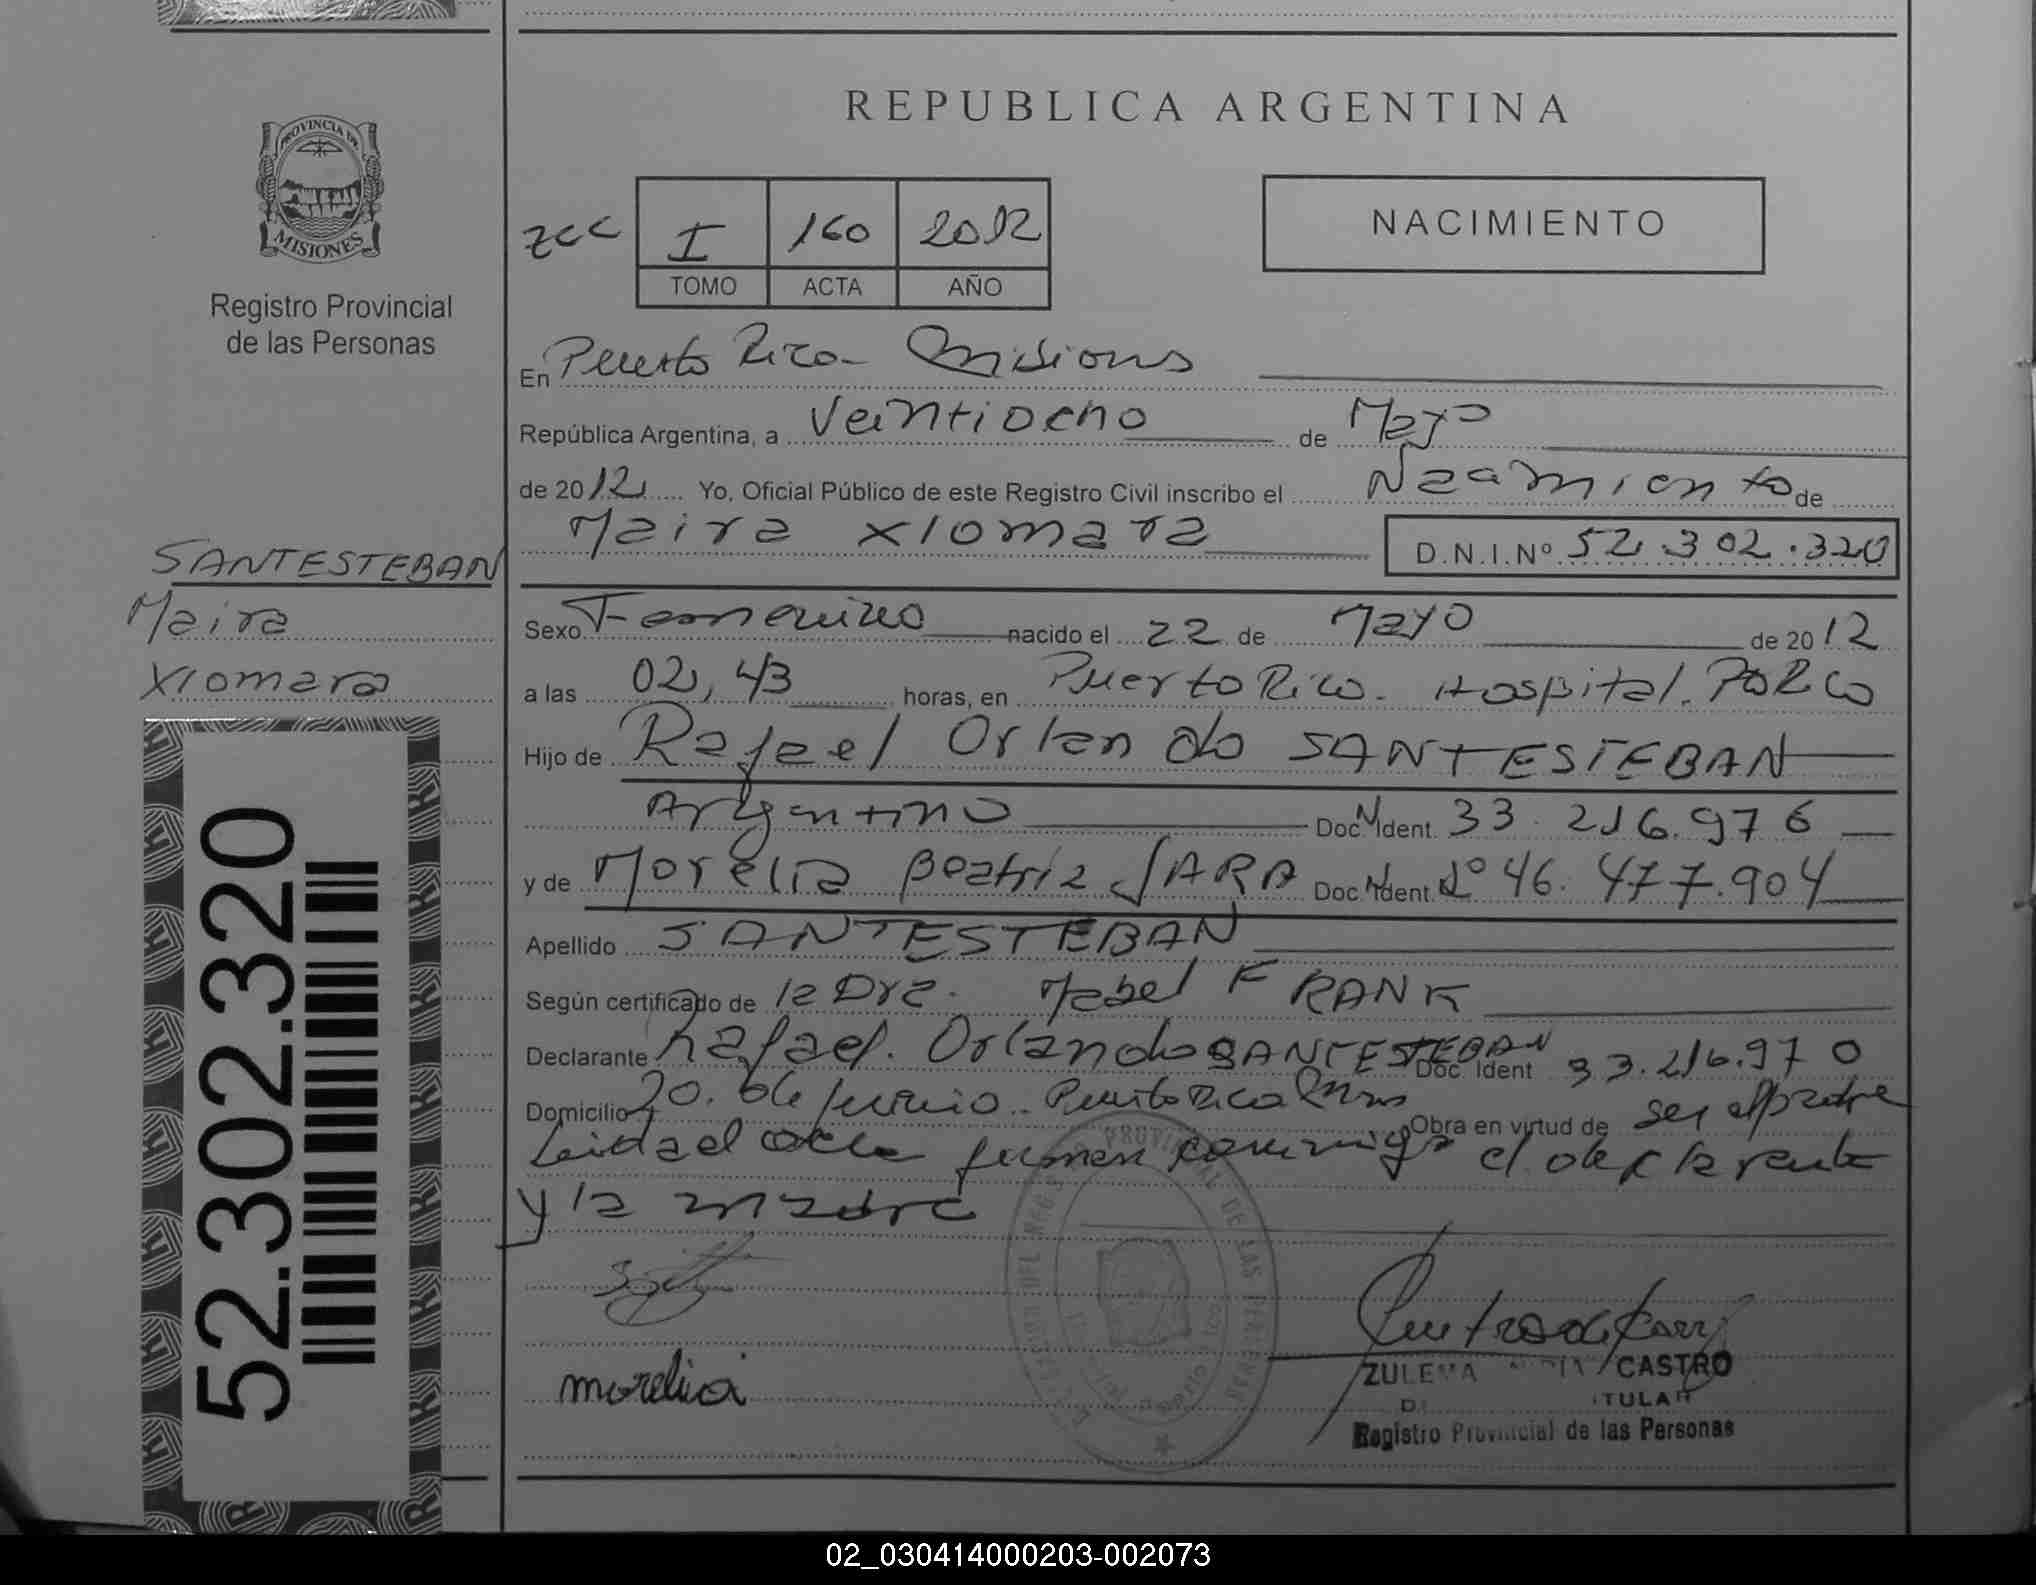 REPUBLICA ARGENTINA
PROVINCIA DE
MISIONES
Registro Provincial
de las Personas
zcc I 160 2012
TOMO ACTA AÑO
NACIMIENTO
En Puerto Rico - Misiones
República Argentina, a Veintiocho de Mayo
de 2012 Yo, Oficial Público de este Registro Civil inscribo el Nacimiento de
Maira Xiomara D.N.I.Nº 52.302.320
SANTESTEBAN
Maira
Xiomara
Sexo Femenino nacido el 22 de Mayo de 2012
a las 02,43 horas, en Puerto Rico. Hospital. Pto Rico
Hijo de Rafael Orlando SANTESTEBAN
Argentino Doc. N Ident. 33.216.976
y de Morelia Beatriz JARA Doc. Ident. Nº 46.477.904
Apellido SANTESTEBAN
Según certificado de la Dra. Mabel FRANK
Declarante Rafael. Orlando SANTESTEBAN Doc. Ident 33.216.970
Domicilio 20. de Junio.. Puerto Rico Mnes Obra en virtud de ser el padre
Leida el acta firman conmigo el declarante
y la madre
morelia
52.302.320
PROVINCIAL DE LAS PERSONAS
ZULEMA CASTRO
TITULAR
Registro Provincial de las Personas
02_030414000203-002073